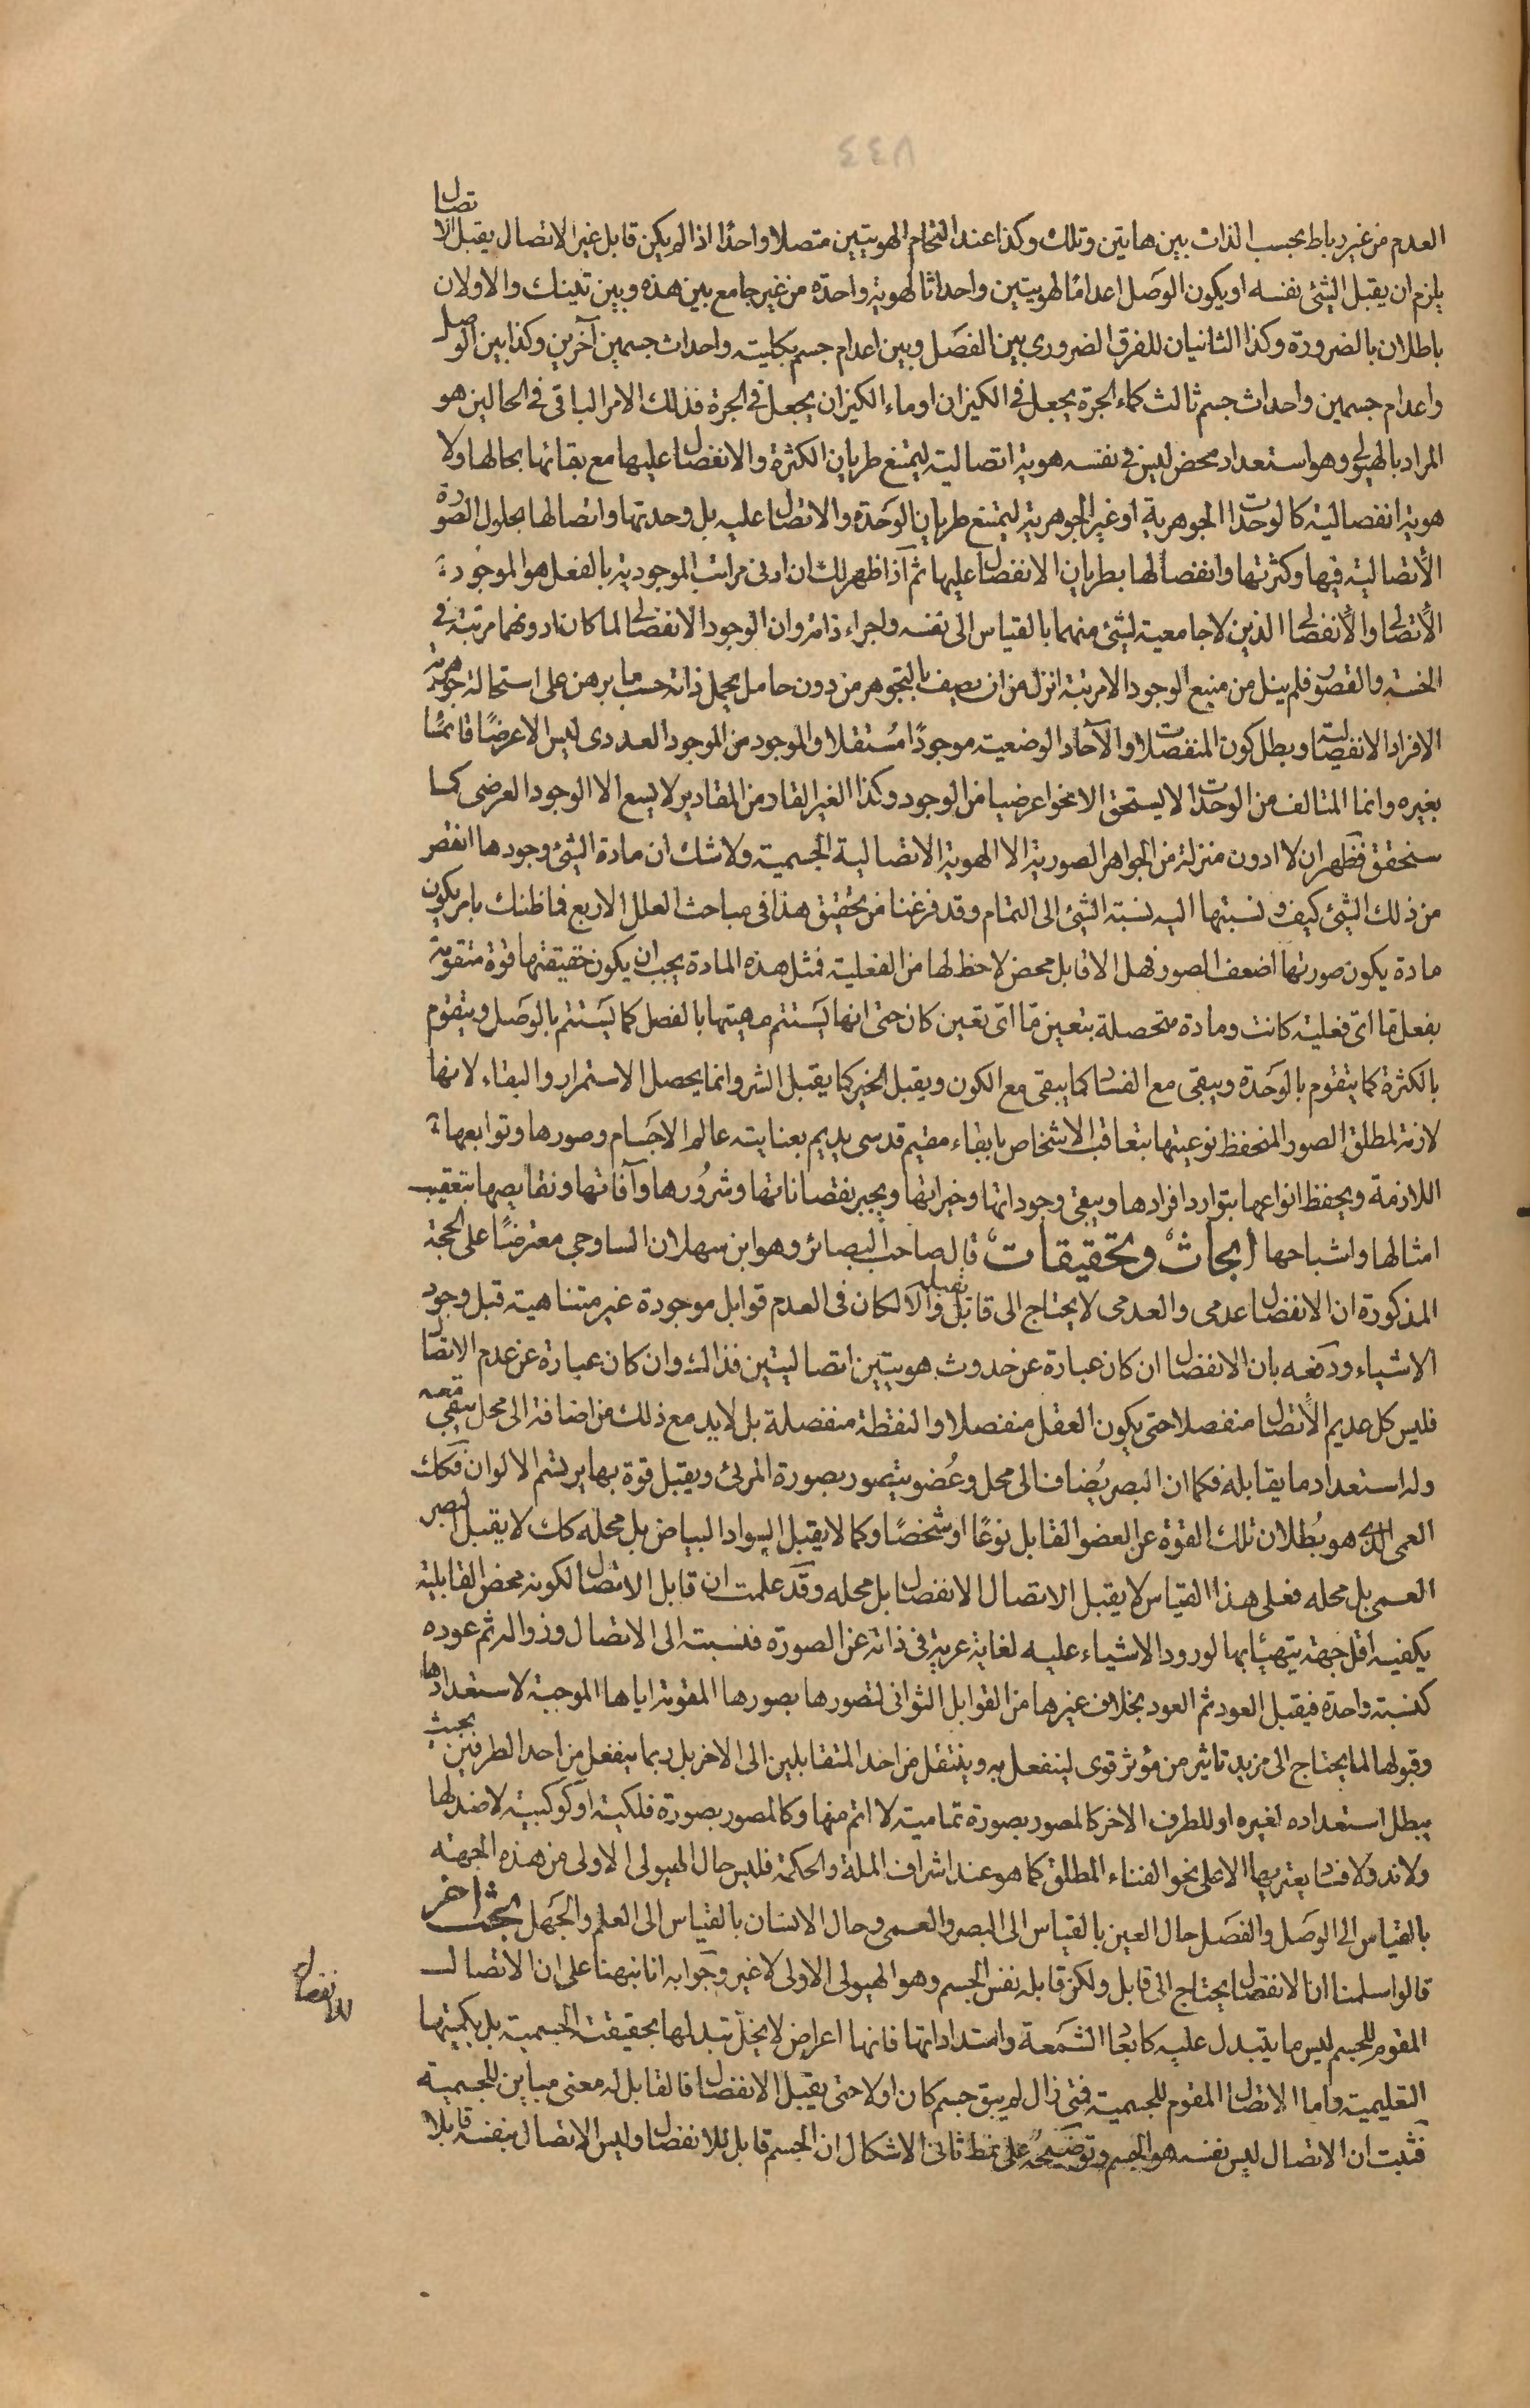 العدم من غير رباط بحسب الذات بين هاتين وتلك وكذا عند التحام الهويتين متصلا واحدا اذا لم يكن قابل غير الاتصال يقبل الاتصال
يلزم ان يقبل الشئ نفسه او يكون الوصل اعداما لهويتين واحداثا لهوية واحدة من غير جامع بين هذه وبين تينك والاولان
باطلان بالضرورة وكذا الثانيان للفرق الضروري بين الفصل وبين اعدام جسم بكليته واحداث جسمين آخرين وكذا بين الوصل
واعدام جسمين واحداث جسم ثالث كماء الجرة يجعل في الكيزان او ماء الكيزان يجعل في الجرة فذلك الامر الباقي في الحالين هو
المراد بالهيولى وهو استعداد محض ليس في نفسه هوية اتصالية ليمتنع طريان الكثرة والانفصال عليها مع بقائها بحالها ولا
هوية انفصالية كالوحدات الجوهرية او غير الجوهرية ليمتنع طريان الوحدة والاتصال عليه بل وحدتها واتصالها بحلول الصورة
الاتصالية فيها وكثرتها وانفصالها بطريان الانفصال عليها ثم اذا ظهر لك ان ادنى مراتب الموجودية بالفعل هو الموجود
الاتصالي والانفصالي الذين لا جامعية لشئ منهما بالقياس الى نفسه واجزاء ذاته وان الوجود الانفصالي لما كان ادونهما مرتبة في
الخسة والقصور فلم ينل من منبع الوجود الا مرتبة انزل من ان يصف بالتجوهر من دون حامل يحمل ذاته حسب ما برهن على استحالة جوهرية
الافراد الانفصالية وبطل كون المنفصلات والآحاد الوضعية موجودا مستقلا والموجود من الموجود العددى ليس الا عرضا قائما
بغيره وانما المتالف من الوحدات لا يستحق الا نحوا عرضيا من الوجود وكذا الغير القار من المقادير لا يسع الا الوجود العرضى كما
سنحقق فظهر ان لا ادون منزلة من الجواهر الصورية الا الهوية الاتصالية الجسمية ولا شك ان مادة الشئ وجودها انقص
من ذلك الشئ كيف ونسبتها اليه نسبة الشئ الى التمام وقد فرغنا من تحقيق هذا في مباحث العلل الاربع فما ظنك بامر يكون
مادة يكون صورتها اضعف الصور فهل الا قابل محض لا حظ لها من الفعلية فمثل هذه المادة يجب ان يكون حقيقتها قوة متقومة
بفعل ما اى فعلية كانت ومادة متحصلة بتعين ما اى تعين كان حتى انها يستتم مهيتها بالفصل كما يستتم بالوصل ويتقوم
بالكثرة كما يتقوم بالوحدة ويبقى مع الفساد كما يبقى مع الكون ويقبل الخير كما يقبل الشر وانما يحصل الاستمرار والبقاء لانها
لازمة لمطلق الصور المنحفظ نوعيتها بتعاقب الاشخاص بابقاء مقيم قدسى يديم بعنايته عالم الاجسام وصورها وتوابعها
اللازمة ويحفظ انواعها بتوارد افرادها ويبقى وجوداتها وخيراتها ويجبر نقصاناتها وشرورها وآفاتها ونقايصها بتعقيب
امثالها واشباحها ابحاث وتحقيقات قال صاحب البصائر وهو ابن سهلان الساوجي معترضا على الحجة
المذكورة ان الانفصال عدمى والعدمى لا يحتاج الى قابل يقبله والا لكان في العدم قوابل موجودة غير متناهية قبل وجود
الاشياء ودفعه بان الانفصال ان كان عبارة عن حدوث هويتين اتصاليتين فذاك وان كان عبارة عن عدم الاتصال
فليس كل عديم الاتصال منفصلا حتى يكون العقل منفصلا والنقطة منفصلة بل لابد مع ذلك من اضافة الى محل يبقى معه
وله استعداد ما يقابله فكما ان البصر يضاف الى محل وعضو يتصور بصورة المرئى ويقبل قوة بها يرتسم الالوان فكك
العمى الذى هو بطلان تلك القوة عن العضو القابل نوعا او شخصا وكما لا يقبل السواد البياض بل محله كك لا يقبل البصر
العمى بل محله فعلى هذا القياس لا يقبل الاتصال الانفصال بل محله وقد علمت ان قابل الاتصال لكونه محض القابلية
يكفيه اقل جهة يتهيأ بها لورود الاشياء عليه لغاية عريه في ذاته عن الصورة فنسبته الى الاتصال وزواله ثم عوده
كنسبته واحدة فيقبل العود ثم العود بخلاف غيرها من القوابل الثوانى لتصورها بصورها المقومة اياها الموجبة لاستعدادها
وقبولها لما يحتاج الى مزيد تاثير من مؤثر قوى لينفعل به وينتقل من احد المتقابلين الى الاخر بل ربما ينفعل من احد الطرفين بحيث
يبطل استعداده لغيره او للطرف الاخر كالمصور بصورة تمامية لا اتم منها وكالمصور بصورة فلكية او كوكبية لا ضد لها
ولا ند ولا فساد يعتريها الا على نحو الفناء المطلق كما هو عند اشراف الملة والحكمة فليس حال الهيولى الاولى من هذه الجهة
بالقياس الى الوصل والفصل حال العين بالقياس الى البصر والعمى وحال الانسان بالقياس الى العلم والجهل بحث اخر
قالوا سلمنا ان الانفصال يحتاج الى قابل ولكن قابله نفس الجسم وهو الهيولى الاولى لا غير وجوابه انا نبهنا على ان الاتصال
المقوم للجسم ليس ما يتبدل عليه كابعاد الشمعة وامتداداتها فانها اعراض لا يخل تبدلها بحقيقة الجسمية بل بكميتها
التعليمية واما الاتصال المقوم للجسمية فمتى زال لم يبق جسم كان اولا حتى يقبل الانفصال فالقابل له معنى مباين للجسمية
فثبت ان الاتصال ليس نفسه هو الجسم وتوضيحه على نمط ثانى الاشكال ان الجسم قابل للانفصال وليس الاتصال بنفسه قابلا
للانفصال